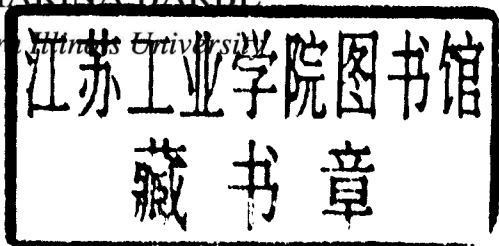 Illinois University
江苏工业学院图书馆
藏书章